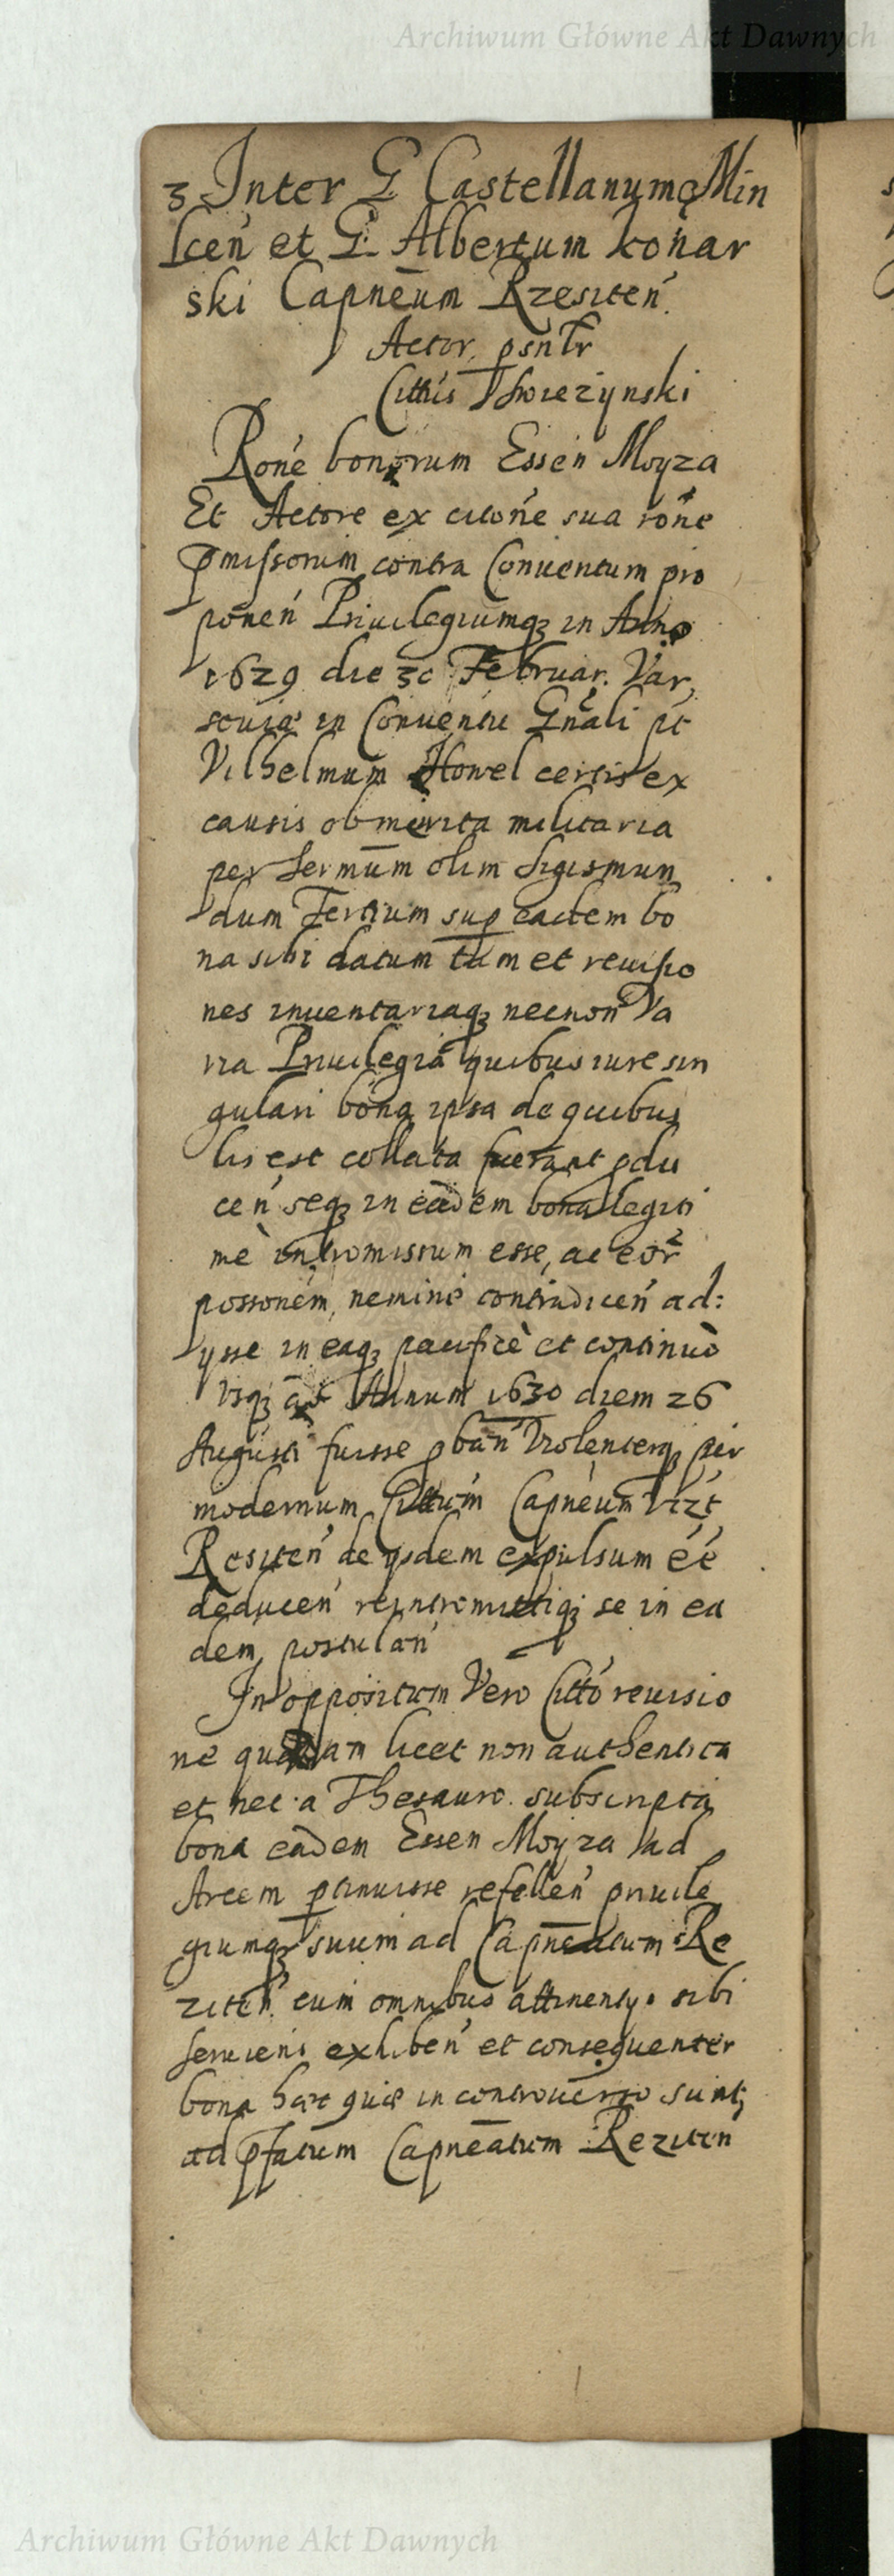 Archiwum Główne Akt Dawnych
3 Inter G Castellanumq Min
scen et G. Albertum konar
ski Capneum Rzesiten.
Actor, psnlr
Cittus Thwierzynski
Rone bonorum Essen Moyza
Et Actore ex citone sua rone
pmissorum contra Conuentum pro
ponen Priuilegiumq3 in Anno
1629 die 30 Februar. Var,
souiae in Conuentu Gnali pt
Vilhelmum Howel certis ex
causis ob merita militaria
per Sermum olim Sigismun
dum Tertium sup eadem bo
na sibi datum tum et reuisio
nes inuentariaq3 necnon Va
ria Priuilegia quibus iure sin
gulari bona ipsa de quibus
lis est collata fuerant pdu
cen seq3 in eadem bona legiti
me intromissum esse, ac eor
possonem, nemine contradicen ad:
ysse in eaq3 pacifice et continuo
vsq3 ad Annum 1630 diem 26
Augusti fuisse pban Violenterq3 per
modernum Cittum Capneum vizt
Resiten de ijsdem expulsum ee
deducen reintromittiq3 se in ea
dem, postulan
In oppositum Vero Citto reuisio
ne quadam licet non authentica
et nec a Thesauro subscripta,
bona eadem Essen Moyza ad
Arcem ptinuisse refellen priuile
giumq3 suum ad Capneatum Re
ziten. cum omnibus attinentijs sibi
seruiens exhiben et consequenter
bona haec quae in controuersio sunt,
ad pfatum Capneatum Reziten
Archiwum Główne Akt Dawnych